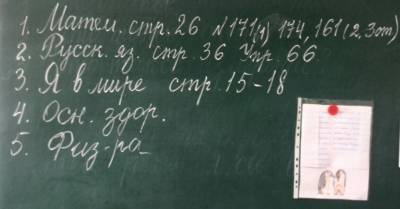 1. Матем. стр. 26 № 171(1) 174, 161 (2, 3 от)
2. Русск. яз. стр 36 Упр. 66
3. Я в мире стр 15-18
4. Осн. здор.
5. Физ-ра